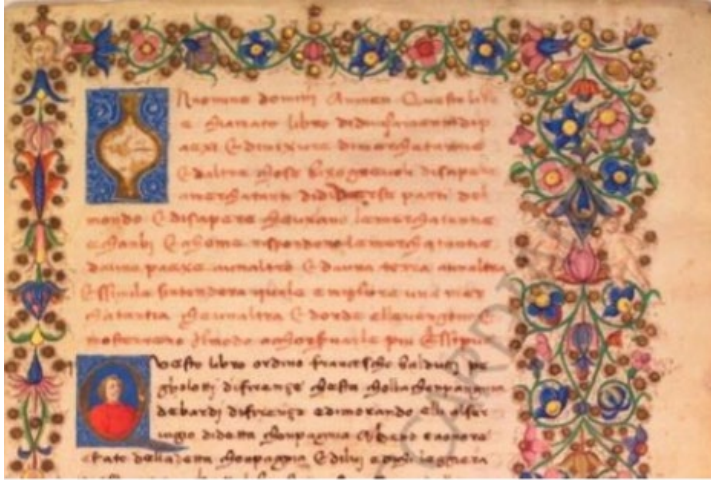 Nnomine domini Amen Questo lib
e chiamato libro didivisamenti dip
aexi Edimixure dimerchatantie
Edaltre chose bixognevoli disapere
amerchatanti didiverse parti del
mondo Edisapere cheuxano lemerchatantie
echanbi Echome rispondono lemerchatantie
dauno paexe aunaltro Edauna terra aunaltra
Essimile sintendera quale emigliore una mer
chatantia cheunaltra Edonde ellevengono E
mosterreno ilmodo achonservalle piu chessipuo
Questo libro ordino franciescho balducci pe
gholotti difirenze chesta cholla chonpagnia
debardi difirenze edimorando elli alser
uigio didetta chonpagnia Echebe aonore
Estato delladetta chonpagnia Edilui edichi leggiera